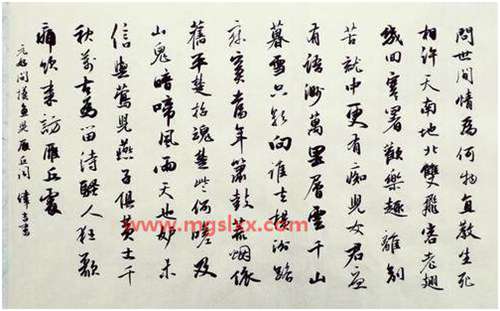 問世間情為何物直教生死
相許天南地北雙飛客老翅
幾回寒暑歡樂趣離別
苦就中更有痴兒女君應
有語渺萬里層雲千山
暮雪只影向誰去橫汾路
寂寞當年簫鼓荒煙依
舊平楚招魂楚些何嗟及
山鬼暗啼風雨天也妒未
信與鶯兒燕子俱黃土千
秋萬古為留待騷人狂歌
痛飲來訪雁丘處
元好問摸魚兒雁丘詞
www.mgslxx.com